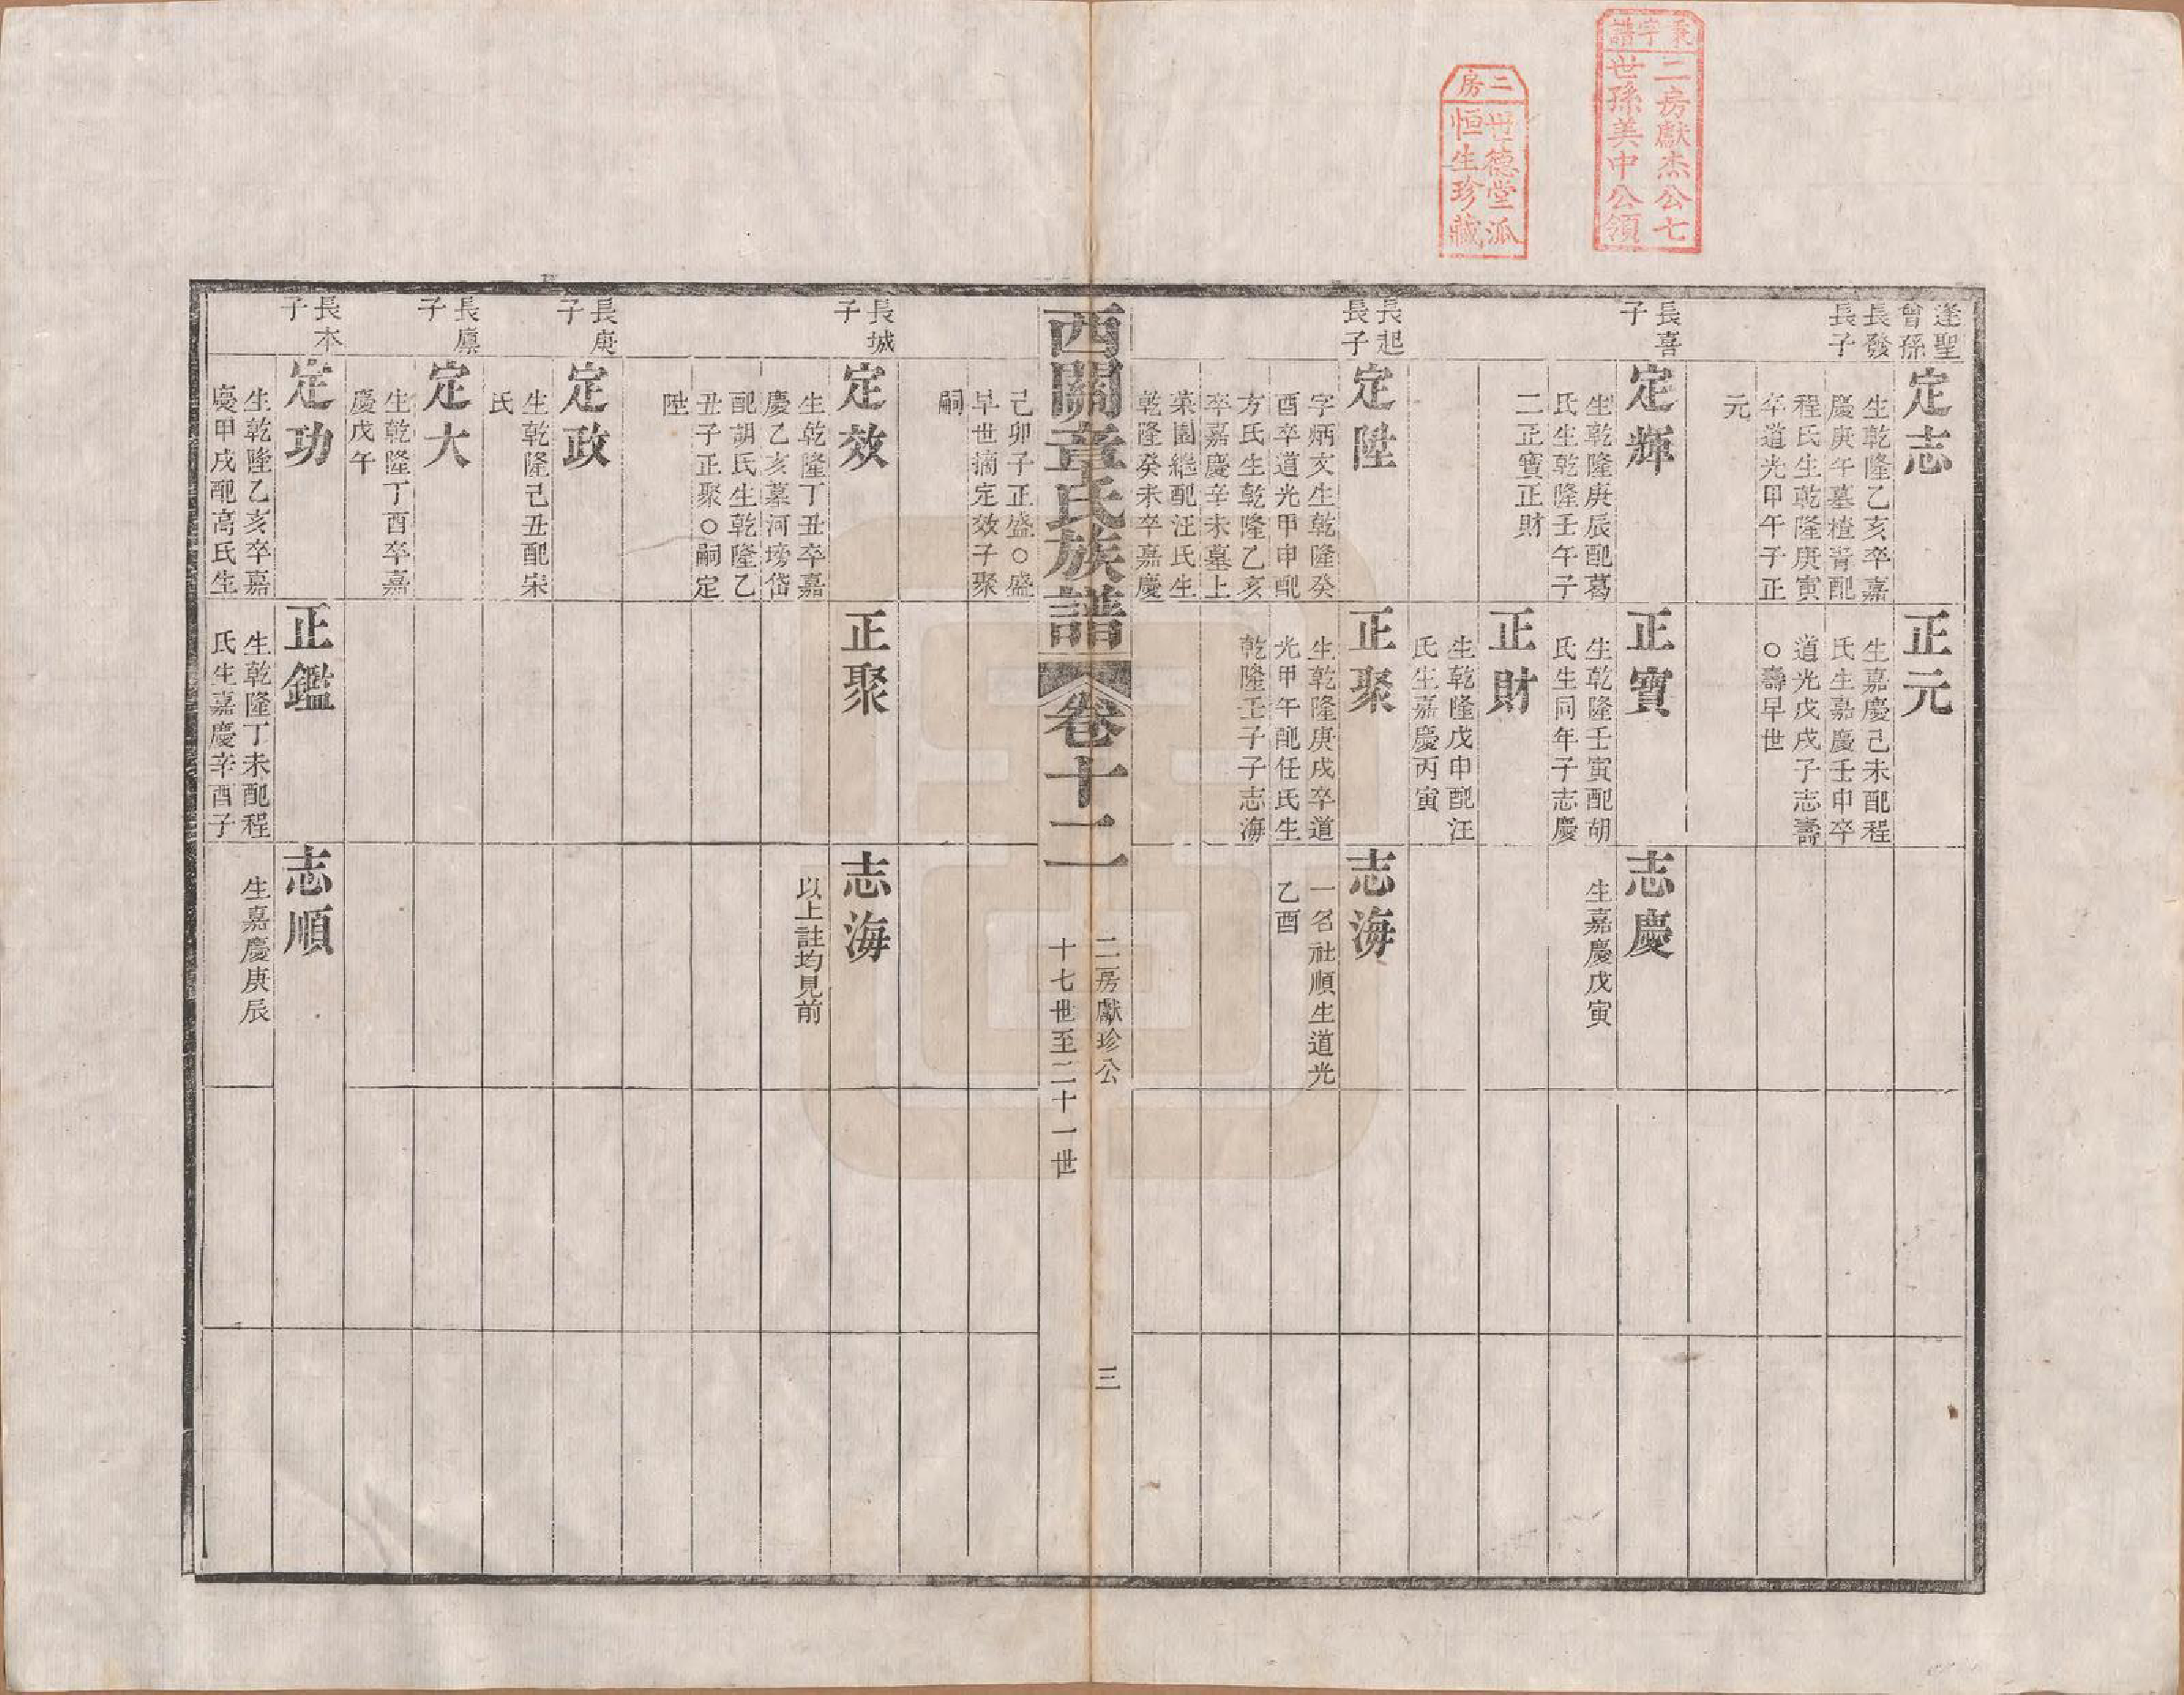 秉字譜
二房獻杰公七
世孫美中公領
二房
世德堂派
恒生珍藏
逢聖
曾孫
長發
長子
定志
生乾隆乙亥卒嘉
慶庚午墓楂背配
程氏生乾隆庚寅
卒道光甲午子正
元
正元
生嘉慶己未配程
氏生嘉慶壬申卒
道光戊戌子志壽
○壽早世
長喜
子
定輝
生乾隆庚辰配葛
氏生乾隆壬午子
二正寶正財
正寶
生乾隆壬寅配胡
氏生同年子志慶
志慶
生嘉慶戊寅
正財
生乾隆戊申配汪
氏生嘉慶丙寅
長起
長子
定陞
字炳文生乾隆癸
酉卒道光甲申配
方氏生乾隆乙亥
卒嘉慶辛未墓上
菜園繼配汪氏生
乾隆癸未卒嘉慶
正聚
生乾隆庚戌卒道
光甲午配任氏生
乾隆壬子子志海
志海
一名社順生道光
乙酉
西關章氏族譜
卷十二
二房獻珍公
十七世至二十一世
三
己卯子正盛○盛
早世摘定效子聚
嗣
長城
子
定效
生乾隆丁丑卒嘉
慶乙亥墓河塝岱
配胡氏生乾隆乙
丑子正聚○嗣定
陞
正聚
志海
以上註均見前
長庚
子
定政
生乾隆己丑配宋
氏
長廩
子
定大
生乾隆丁酉卒嘉
慶戊午
長本
子
定功
生乾隆乙亥卒嘉
慶甲戌配高氏生
正鑑
生乾隆丁未配程
氏生嘉慶辛酉子
志順
生嘉慶庚辰